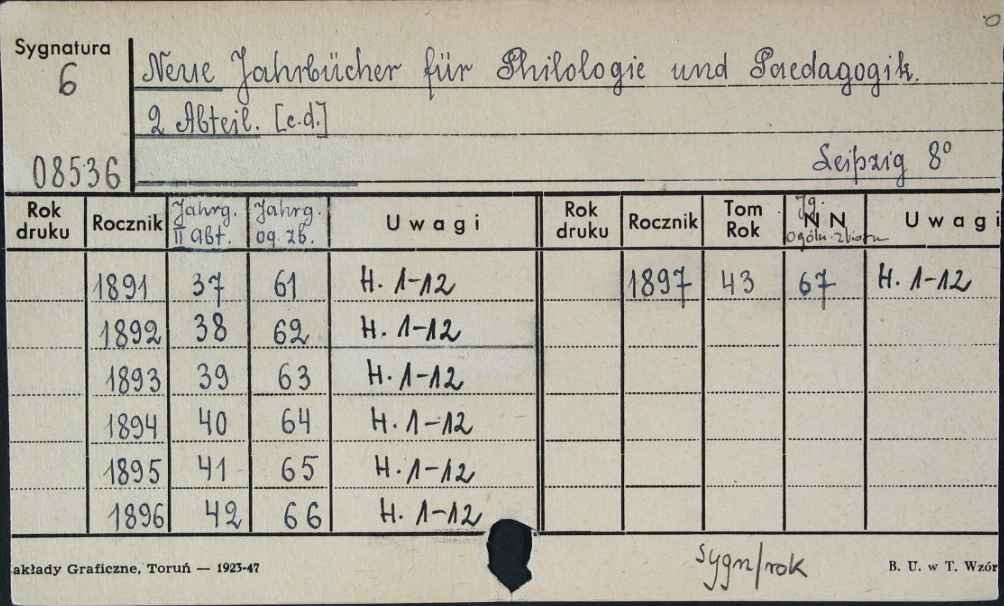 Sygnatura
6
08536
Neue Jahrbücher für Philologie und Paedagogik.
2 Abteil. [c.d.]
Leipzig 8°
Rok druku Rocznik Jahrg. II Abt. Jahrg. og. zb. Uwagi Rok druku Rocznik Tom Rok Jg. N N ogóln. zbioru Uwagi
1891 37 61 H. 1-12 1897 43 67 H. 1-12
1892 38 62 H. 1-12
1893 39 63 H. 1-12
1894 40 64 H. 1-12
1895 41 65 H. 1-12
1896 42 66 H. 1-12
sygn/rok
akłady Graficzne, Toruń — 1923-47 B. U. w T. Wzór